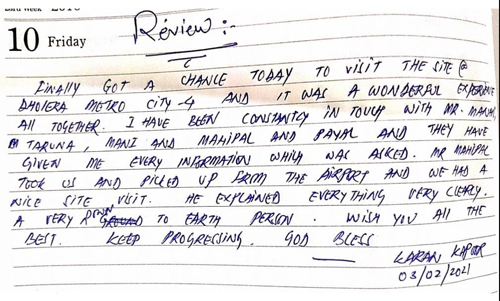 10 Friday
Review:-
FINALLY GOT A CHANCE TODAY TO VISIT THE SITE @
DHOLERA METRO CITY-4 AND IT WAS A WONDERFUL EXPERIENCE
ALL TOGETHER. I HAVE BEEN CONSTANTLY IN TOUCH WITH MR.
TARUNA, MANI AND MAHIPAL AND PAYAL AND THEY HAVE
GIVEN ME EVERY INFORMATION WHICH WAS ASKED. MR MAHIPAL
TOOK US AND PICKED UP FROM THE AIRPORT AND WE HAD A
NICE SITE VISIT. HE EXPLAINED EVERYTHING VERY CLEARLY.
A VERY DOWN TO EARTH PERSON. WISH YOU ALL THE
BEST. KEEP PROGRESSING. GOD BLESS
KARAN KAPOOR
03/02/2021